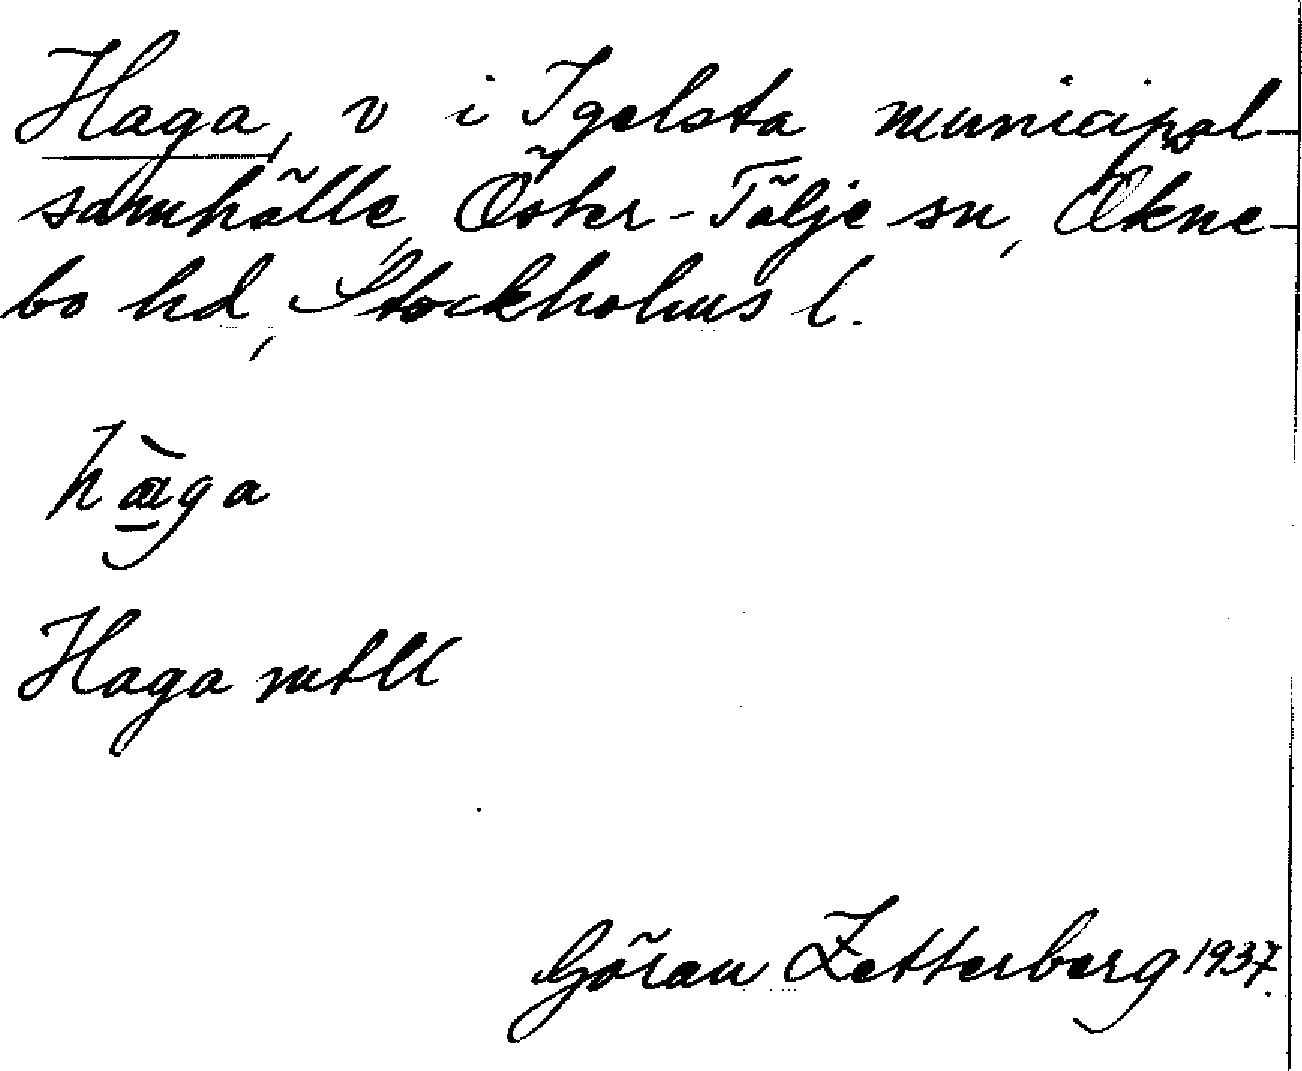 Haga, v i Igelsta municipal-
samhälle, Öster-Tälje sn, Økne-
bo hd, Stockholms l.
hàga
Haga mtll
Göran Zetterberg 1937.